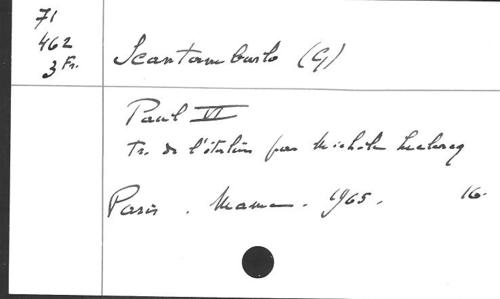 71
462
3 Fr.
Scantamburlo (G)
Paul VI
Tr. de l'italien par Michèle Leclercq
Paris. Mame. 1965. 16.